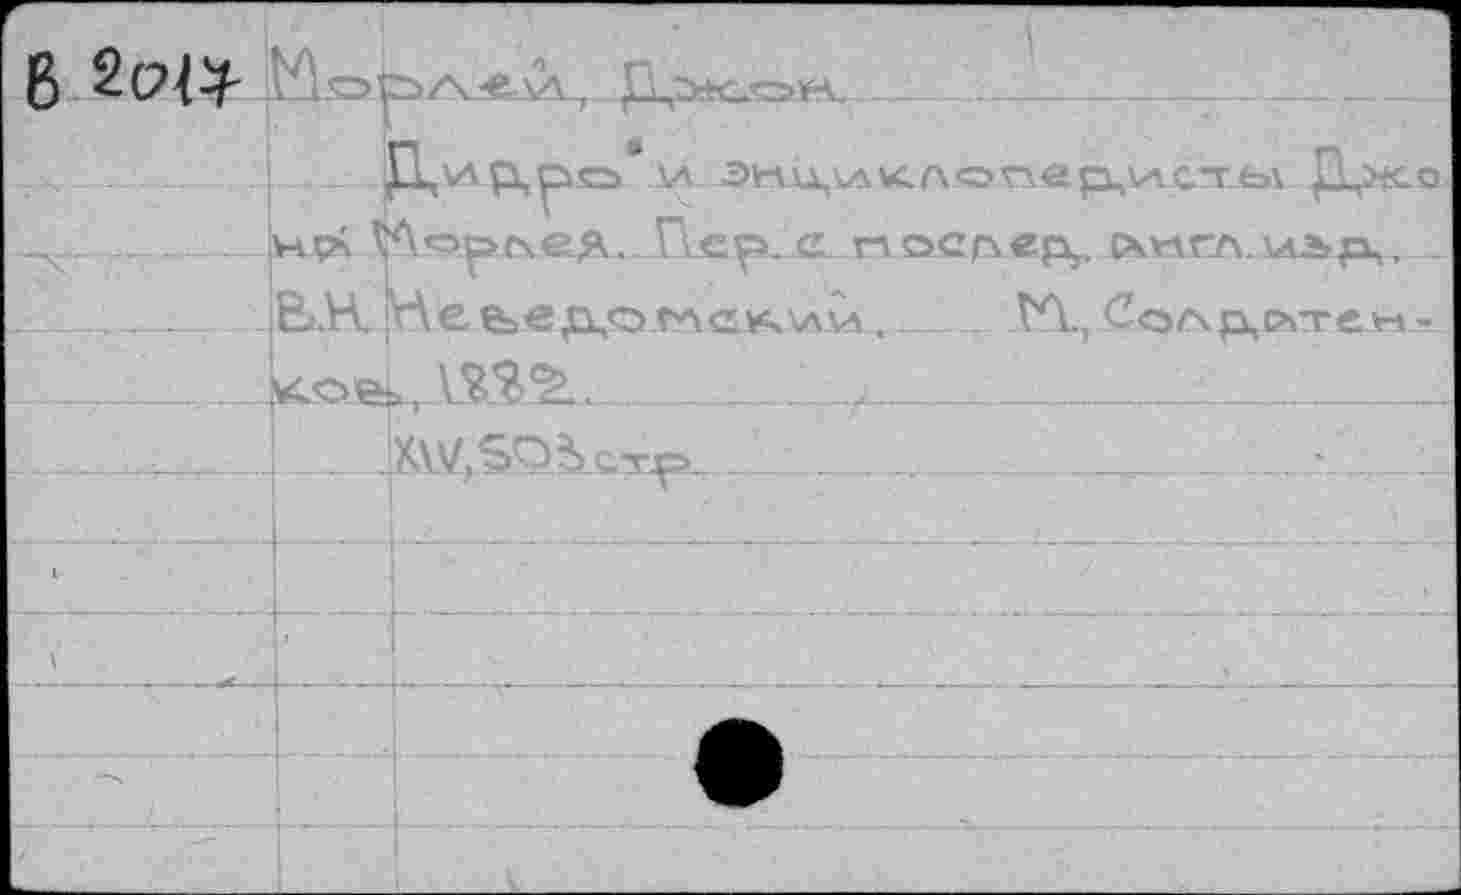 В 2017 Морлей, Джон
Дидро и энциклопедисты Джо
на Морлея. Пер. с послед. англ. изд.
В.Н. Неведомский. М., Солдатен-
ков, 1882.
XIV, 503 стр.